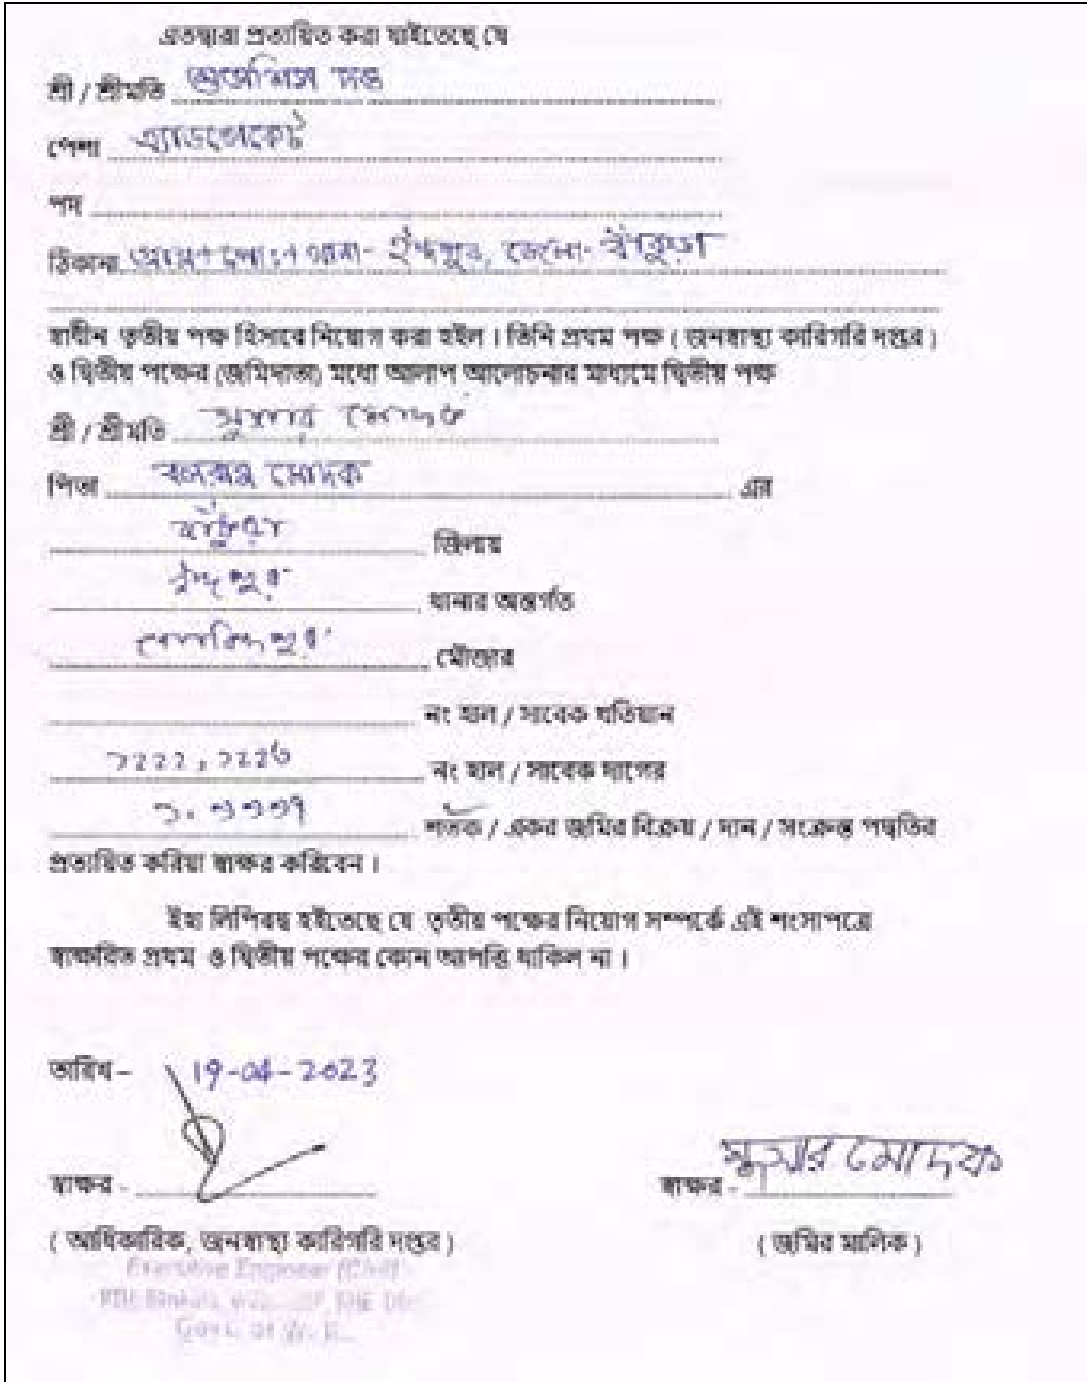 এতদ্বারা প্রত্যয়িত করা যাইতেছে যে
শ্রী / শ্রীমতি শুভাশিস দত্ত
পেশা এ্যাডভোকেট
পদ
ঠিকানা থানা- ইন্দপুর, জেলা- বাঁকুড়া
স্বাধীন তৃতীয় পক্ষ হিসাবে নিয়োগ করা হইল । তিনি প্রথম পক্ষ ( জনস্বাস্থ্য কারিগরি দপ্তর )
ও দ্বিতীয় পক্ষের (জমিদাতা) মধ্যে আলাপ আলোচনার মাধ্যমে দ্বিতীয় পক্ষ
শ্রী / শ্রীমতি মোদক
পিতা মোদক এর
বাঁকুড়া জিলায়
ইন্দপুর থানার অন্তর্গত
গোবিন্দপুর মৌজার
নং হাল / সাবেক খতিয়ান
নং হাল / সাবেক দাগের
শতক / একর জমির বিক্রয় / দান / সংক্রান্ত পদ্ধতির
প্রত্যয়িত করিয়া স্বাক্ষর করিবেন ।
ইহা লিপিবদ্ধ হইতেছে যে তৃতীয় পক্ষের নিয়োগ সম্পর্কে এই শংসাপত্রে
স্বাক্ষরিত প্রথম ও দ্বিতীয় পক্ষের কোন আপত্তি থাকিল না ।
তারিখ - 19-04-2023
স্বাক্ষর -
স্বাক্ষর - মোদক
( আধিকারিক, জনস্বাস্থ্য কারিগরি দপ্তর )
( জমির মালিক )
Executive Engineer (Civil)
Govt. of W. B.